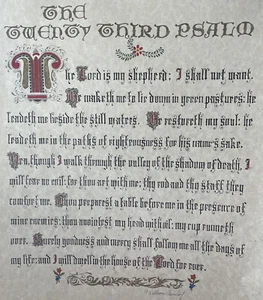 THE
TWENTY THIRD PSALM
The Lord is my shepherd; I shall not want.
He maketh me to lie down in green pastures: he
leadeth me beside the still waters. He restoreth my soul: he
leadeth me in the paths of righteousness for his name's sake.
Yea, though I walk through the valley of the shadow of death, I
will fear no evil: for thou art with me; thy rod and thy staff they
comfort me. Thou preparest a table before me in the presence of
mine enemies: thou anointest my head with oil; my cup runneth
over. Surely goodness and mercy shall follow me all the days of
my life: and I will dwell in the house of the Lord for ever.